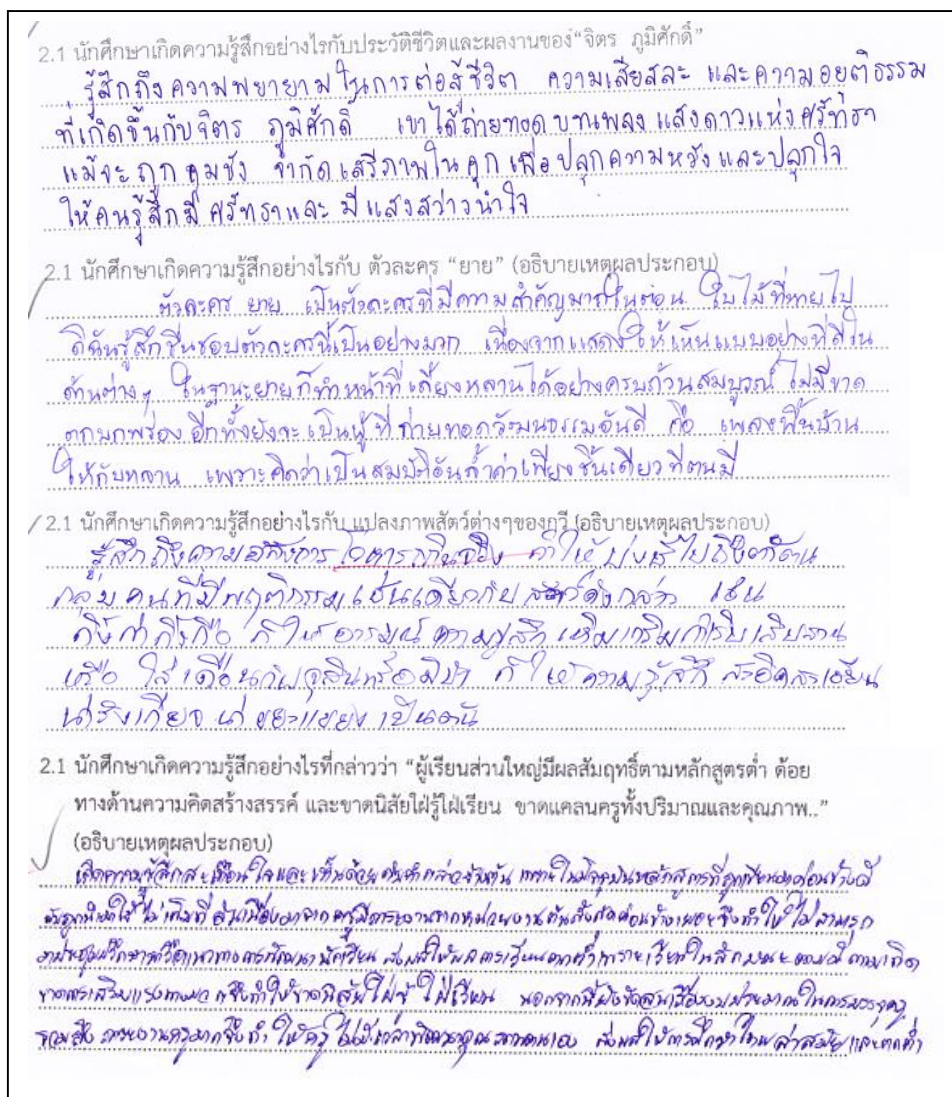 2.1 นักศึกษาเกิดความรู้สึกอย่างไรกับประวัติชีวิตและผลงานของ“จิตร ภูมิศักดิ์”
รู้สึกถึงความพยายามในการต่อสู้ชีวิต ความเสียสละ และความอยุติธรรม
ที่เกิดขึ้นกับจิตร ภูมิศักดิ์ เขาได้ถ่ายทอดบทเพลงแสงดาวแห่งศรัทธา
แม้จะถูกคุมขัง จำกัดเสรีภาพในคุก เพื่อปลุกความหวังและปลุกใจ
ให้คนรู้สึกมีศรัทธาและมีแสงสว่างนำใจ
2.1 นักศึกษาเกิดความรู้สึกอย่างไรกับ ตัวละคร “ยาย” (อธิบายเหตุผลประกอบ)
ตัวละคร ยาย เป็นตัวละครที่มีความสำคัญมากในตอน ใบไม้ที่หายไป
ดิฉันรู้สึกชื่นชอบตัวละครนี้เป็นอย่างมาก เนื่องจากแสดงให้เห็นแบบอย่างที่ดีใน
ด้านต่างๆ ในฐานะยายก็ทำหน้าที่เลี้ยงหลานได้อย่างครบถ้วนสมบูรณ์ ไม่มีขาด
ตกบกพร่อง อีกทั้งยังจะเป็นผู้ที่ถ่ายทอดวัฒนธรรมอันดี คือ เพลงพื้นบ้าน
ให้กับหลาน เพราะคิดว่าเป็นสมบัติอันล้ำค่าเพียงชิ้นเดียวที่ตนมี
2.1 นักศึกษาเกิดความรู้สึกอย่างไรกับ แปลงภาพสัตว์ต่างๆของกวี (อธิบายเหตุผลประกอบ)
รู้สึกถึงความอลังการ โอฬารเกินจริง ทำให้บ่งชี้ไปถึง
กลุ่มคนที่มีพฤติกรรมเช่นเดียวกับสัตว์ดังกล่าว เช่น
กิ้งก่ากิ้งกือ ก็ให้อารมณ์ความรู้สึก เหิมเกริม
หรือ ไส้เดือนกับจุลินทรีย์ ก็ให้ความรู้สึก สะอิดสะเอียน
น่ารังเกียจ น่าขยะแขยง เป็นต้น
2.1 นักศึกษาเกิดความรู้สึกอย่างไรที่กล่าวว่า “ผู้เรียนส่วนใหญ่มีผลสัมฤทธิ์ตามหลักสูตรต่ำ ด้อย
ทางด้านความคิดสร้างสรรค์ และขาดนิสัยใฝ่รู้ใฝ่เรียน ขาดแคลนครูทั้งปริมาณและคุณภาพ..”
(อธิบายเหตุผลประกอบ)
เกิดความรู้สึกสะเทือนใจและเห็นด้วยกับคำกล่าวข้างต้น เพราะในปัจจุบันหลักสูตรที่ถูกเขียนมาค่อนข้างดี
ไม่เต็มที่ เนื่องมาจากครูมีภาระงานจากหน่วยงานต้นสังกัดค่อนข้างเยอะจึงทำให้ไม่สามารถ
แนวทางการพัฒนานักเรียน ส่งผลให้ผลการเรียน
ขาดการเสริมแรงทางบวกจึงทำให้ขาดนิสัยใฝ่รู้ ใฝ่เรียน นอกจากนี้
รวมถึง ภาระงานครูมากจึงทำให้ครูไม่มีเวลาพัฒนาคุณภาพตนเอง ส่งผลให้การศึกษาไทยล้าสมัยและตกต่ำ